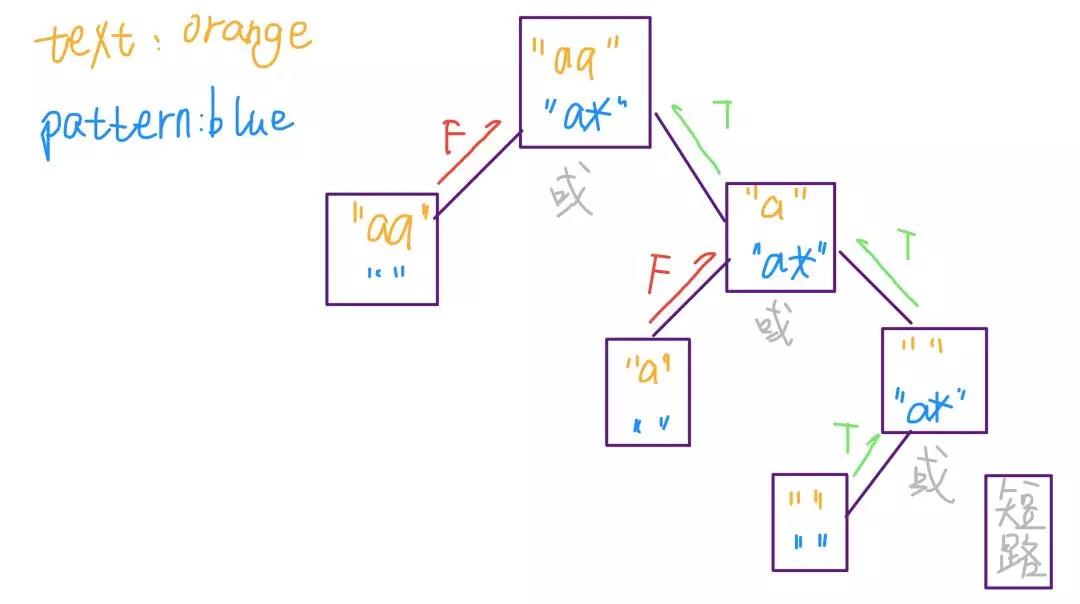 text: orange
pattern:blue
"aa"
"a*"
F
T
或
"aa"
""
"a"
"a*"
F
T
或
"a"
""
""
"a*"
T
或
""
""
短
路